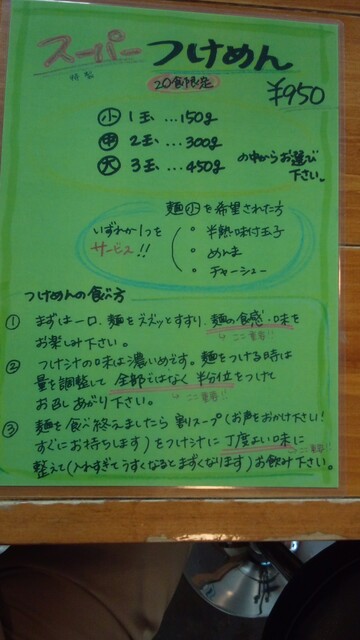 スーパーつけめん
特製
20食限定
¥950
小 1玉…150g
中 2玉…300g
大 3玉…450g
の中からお選び
下さい。
麺小を希望された方
いずれか1つを
サービス!!
• 半熟味付玉子
• めんま
• チャーシュー
つけめんの食べ方
① まずは一口、麺をズズッとすすり、麺の食感・味を
お楽しみ下さい。
ここ重要!!
② つけ汁の味は濃いめです。麺をつける時は
量を調整して全部ではなく半分位をつけて
お召しあがり下さい。
ここ重要!!
③ 麺を食べ終えましたら割りスープ(お声をおかけ下さい!
すぐにお持ちします)をつけ汁に丁度よい味に
ここ重要!!
整えて(入れすぎてうすくなるとまずくなります)お飲み下さい。